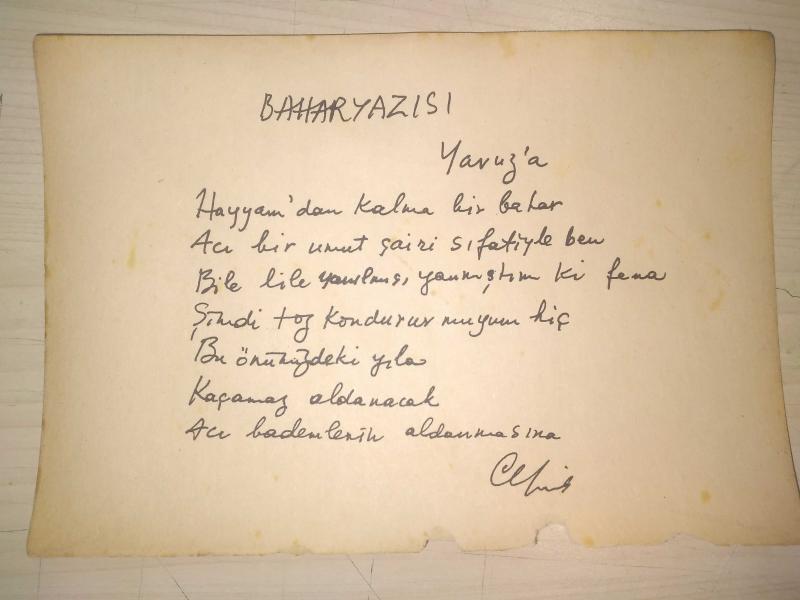 BAHAR YAZISI
Yavuz'a
Hayyam'dan kalma bir bahar
Acı bir umut şairi sıfatiyle ben
Bile bile yanılmış, yanmıştım ki fena
Şimdi toz kondurur muyum hiç
Bu önümüzdeki yıla
Kaçamaz aldanacak
Acı bademlerin aldanmasına